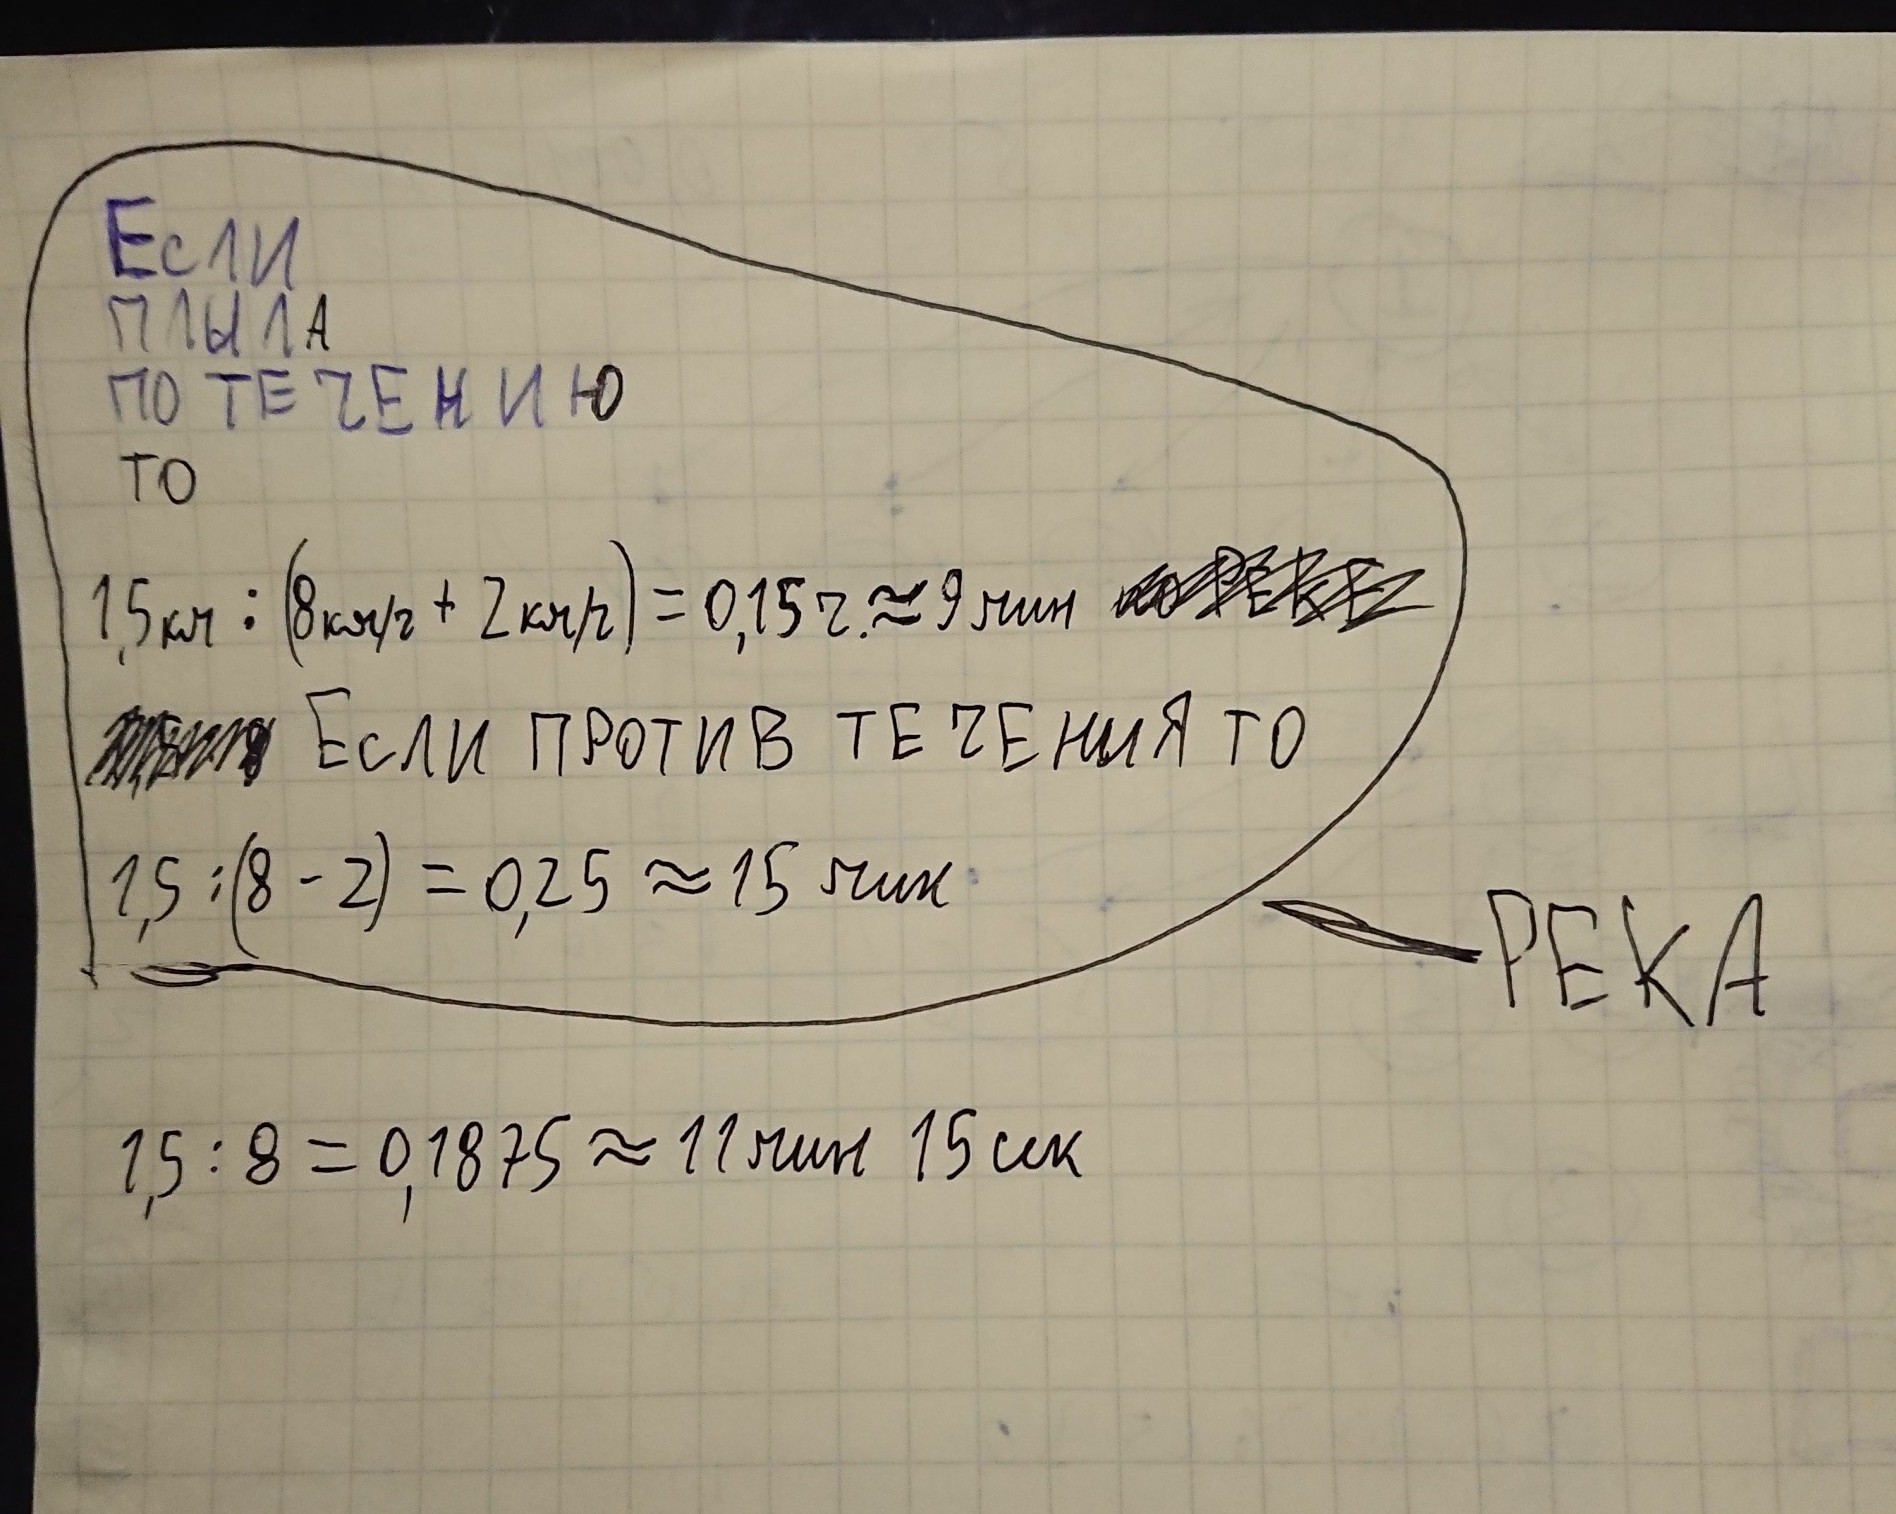 Если
плыла
по течению
то
1,5км : (8км/г + 2км/г) = 0,15г. ≈ 9 мин
Если против течения то
1,5 : (8 - 2) = 0,25 ≈ 15 мин
РЕКА
1,5 : 8 = 0,1875 ≈ 11 мин 15 сек